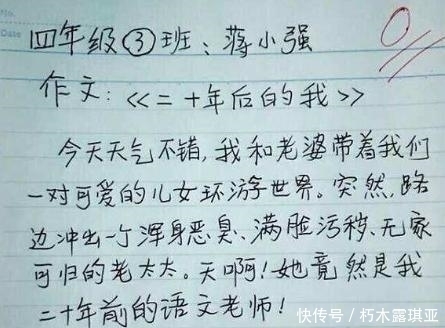 No.
Date
四年级③班：蒋小强
0
作文：《二十年后的我》
今天天气不错，我和老婆带着我们
一对可爱的儿女环游世界。突然，路
边冲出一个浑身恶臭、满脸污秽、无家
可归的老太太。天啊！她竟然是我
二十年前的语文老师！
快传号 / 朽木露琪亚